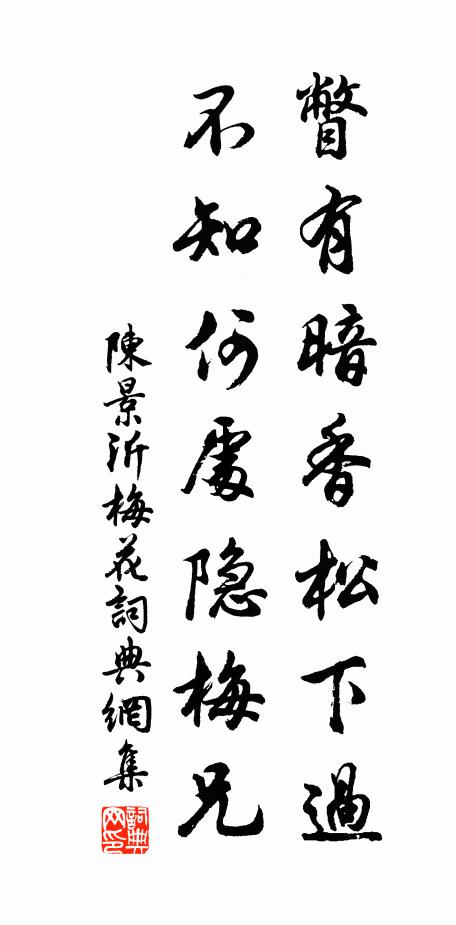 瞥有暗香松下過
不知何處隐梅兄
陳景沂梅花詞典網集
詞典網印